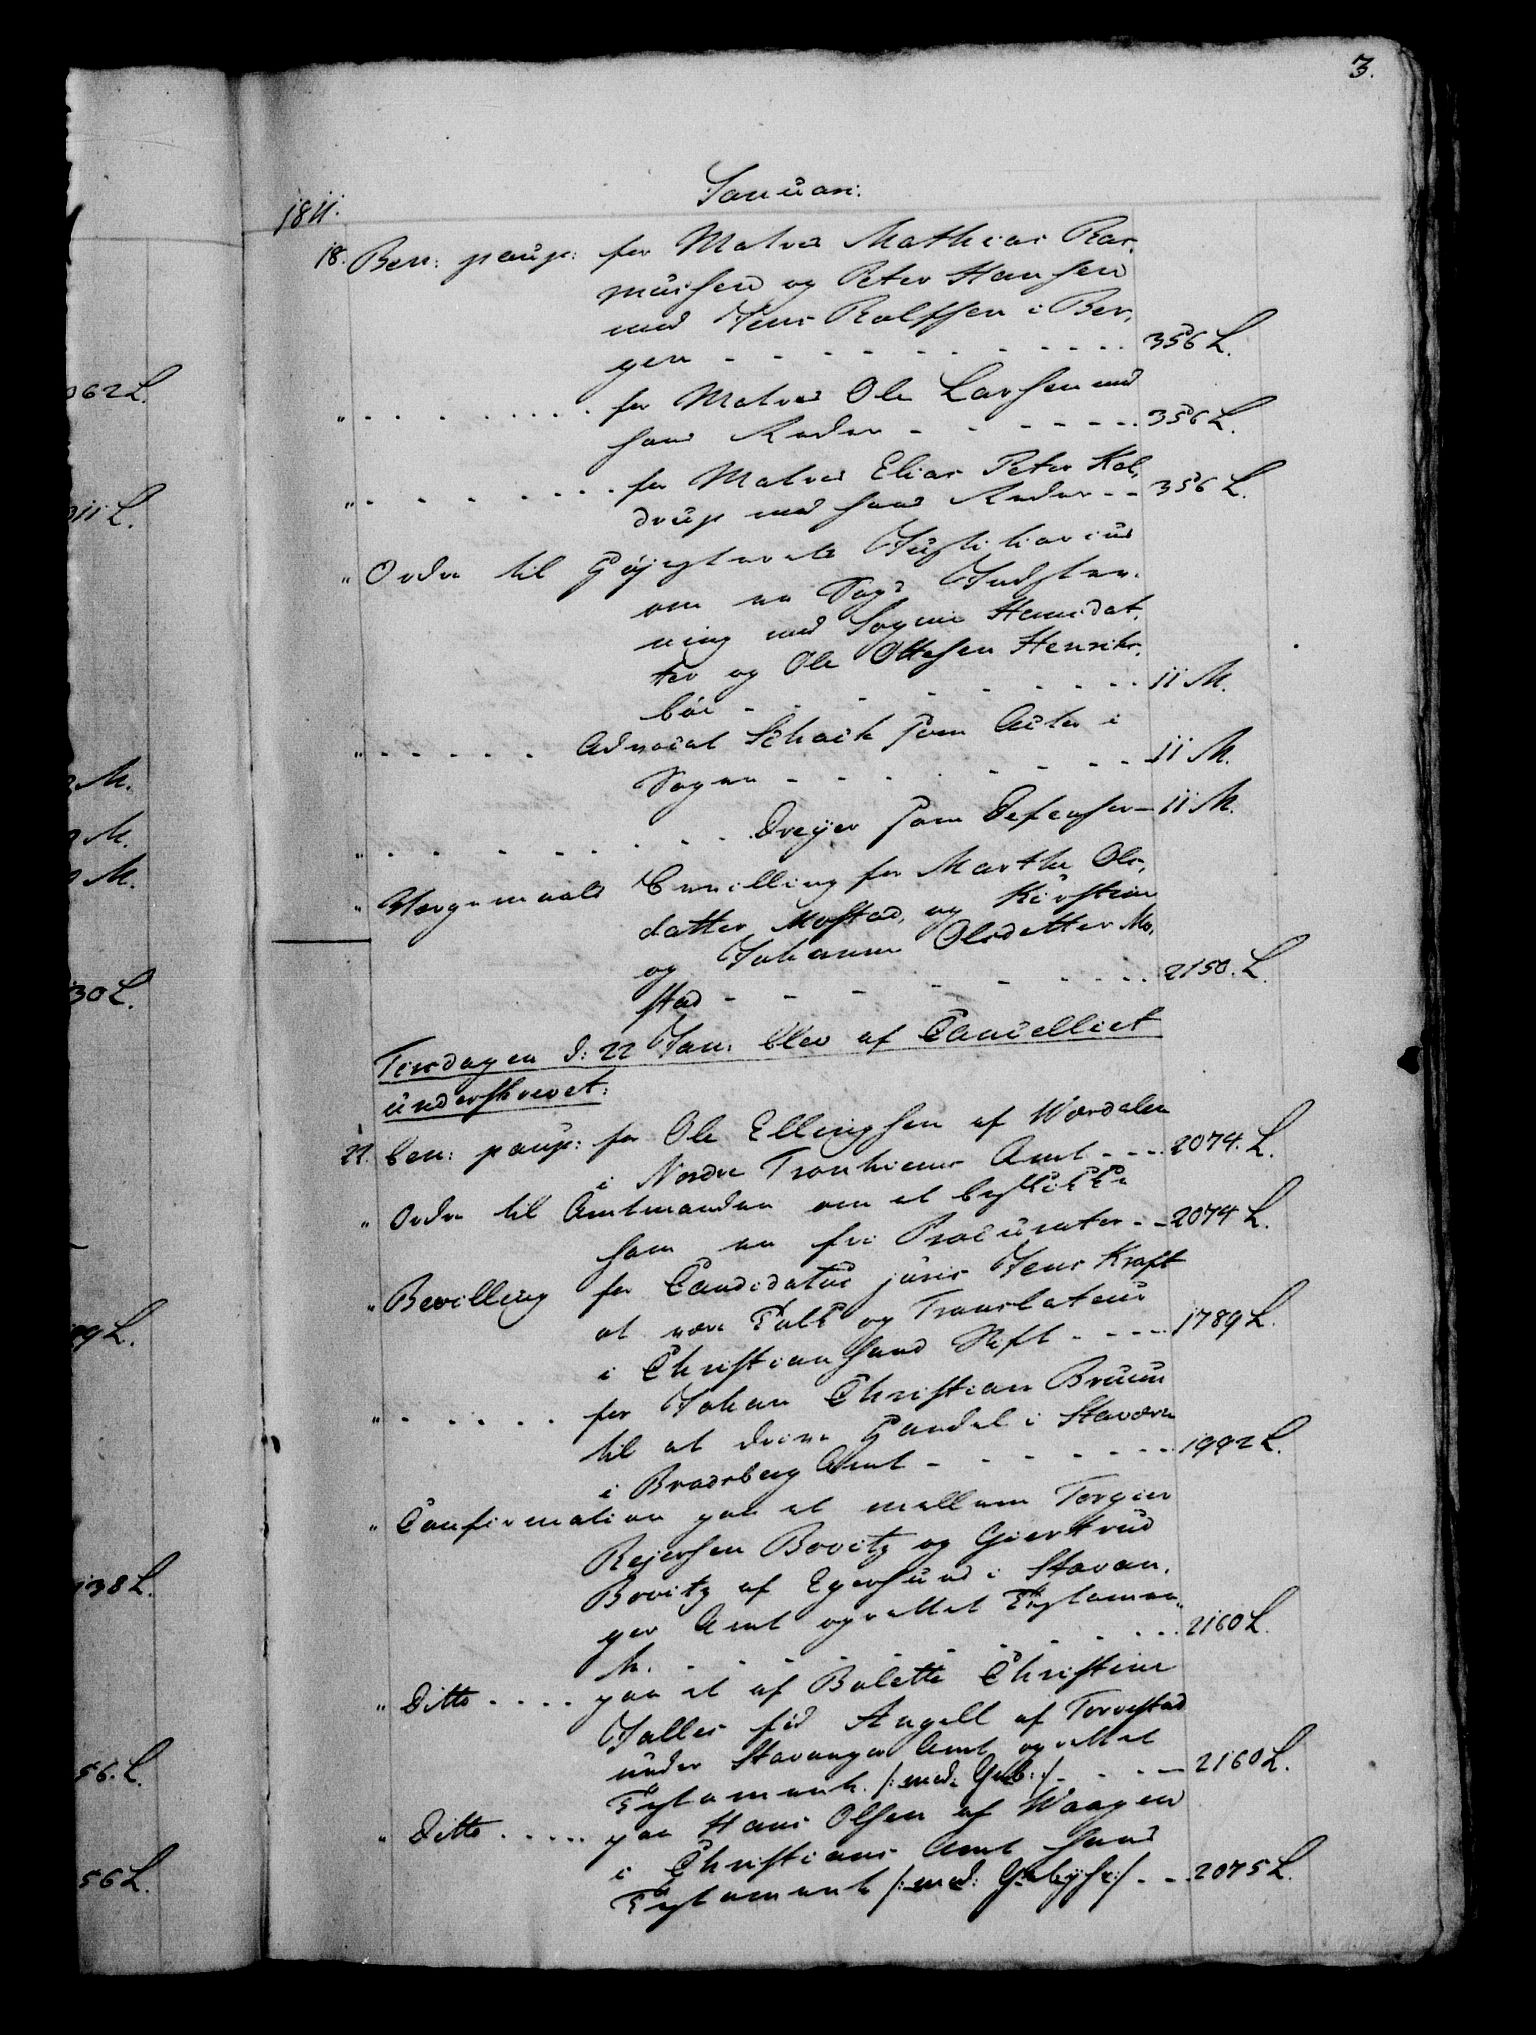 3.
1811.
Januari:
18. Ben: paup: for Matros Mathias Ras,
musen og Peter Hansen
mod Jens Rolfsen i Ber,
gen - - - - - - - - - 356 L.
" - - - - - - - for Matros Ole Larsen mod
hans Reder - - - - - - 356 L.
" - - - - - - - for Matros Elias Peter Kol,
drup mod hans Reder - - 356 L.
" Ordre til Høiesterets Justitiarius
om en Sags Indstev,
ning mod Sogne
ter og Ole Ottesen Henriks,
böe - - - - - - - - 11 M.
" - - - - - Advocat Schack som Actor i
Sagen - - - - - - - 11 M.
" - - - - - - - Dreyer som Defensor - 11 M.
" Værgemaals Bevilling for Marthe Ols,
datter Mostad, og Kirstine
og Johanne Olsdatter Mo,
stad - - - - - - - - 2150. L.
Tirsdagen d: 22 Jan: blev af Cancelliet
underskrevet:
22. ben: paup: for Ole Ellingsen af Wærdalen
i Nordre Tronhiems Amt - - - 2074. L.
" Ordre til Amtmanden om at beskikke
ham en fri Procurator - - 2074 L.
" Bevilling for Candidatus juris Jens Kraft
at være Tolk og Translateur
i Christiansand Stift - - - - 1789 L.
" - - - - - for Johan Christian Bruun
til at drive Handel i Stavern
i Bradsberg Amt - - - - - - 1992 L.
" Confirmation paa et mellem Torgier
Rejersen Bovitz og Giertrud
Bovitz af Egersund i Stavan,
ger Amt oprettet Testamen,
te. - - - - - - - - - 2160 L.
" Ditto - - - - paa et af Bolette Christine
Valles fød Angell af Torvestad
under Stavanger Amt oprettet
Testamente. /: med: Geb: / - - - - 2160 L.
" Ditto - - - - - paa Hans Olsen af Waagen
i Christians Amt hans
Testamente /: med: Gebyhr: / - - 2075 L.
062 L.
011 L.
M.
M.
M.
30 L.
09 L.
138 L.
56. L.
56 L.